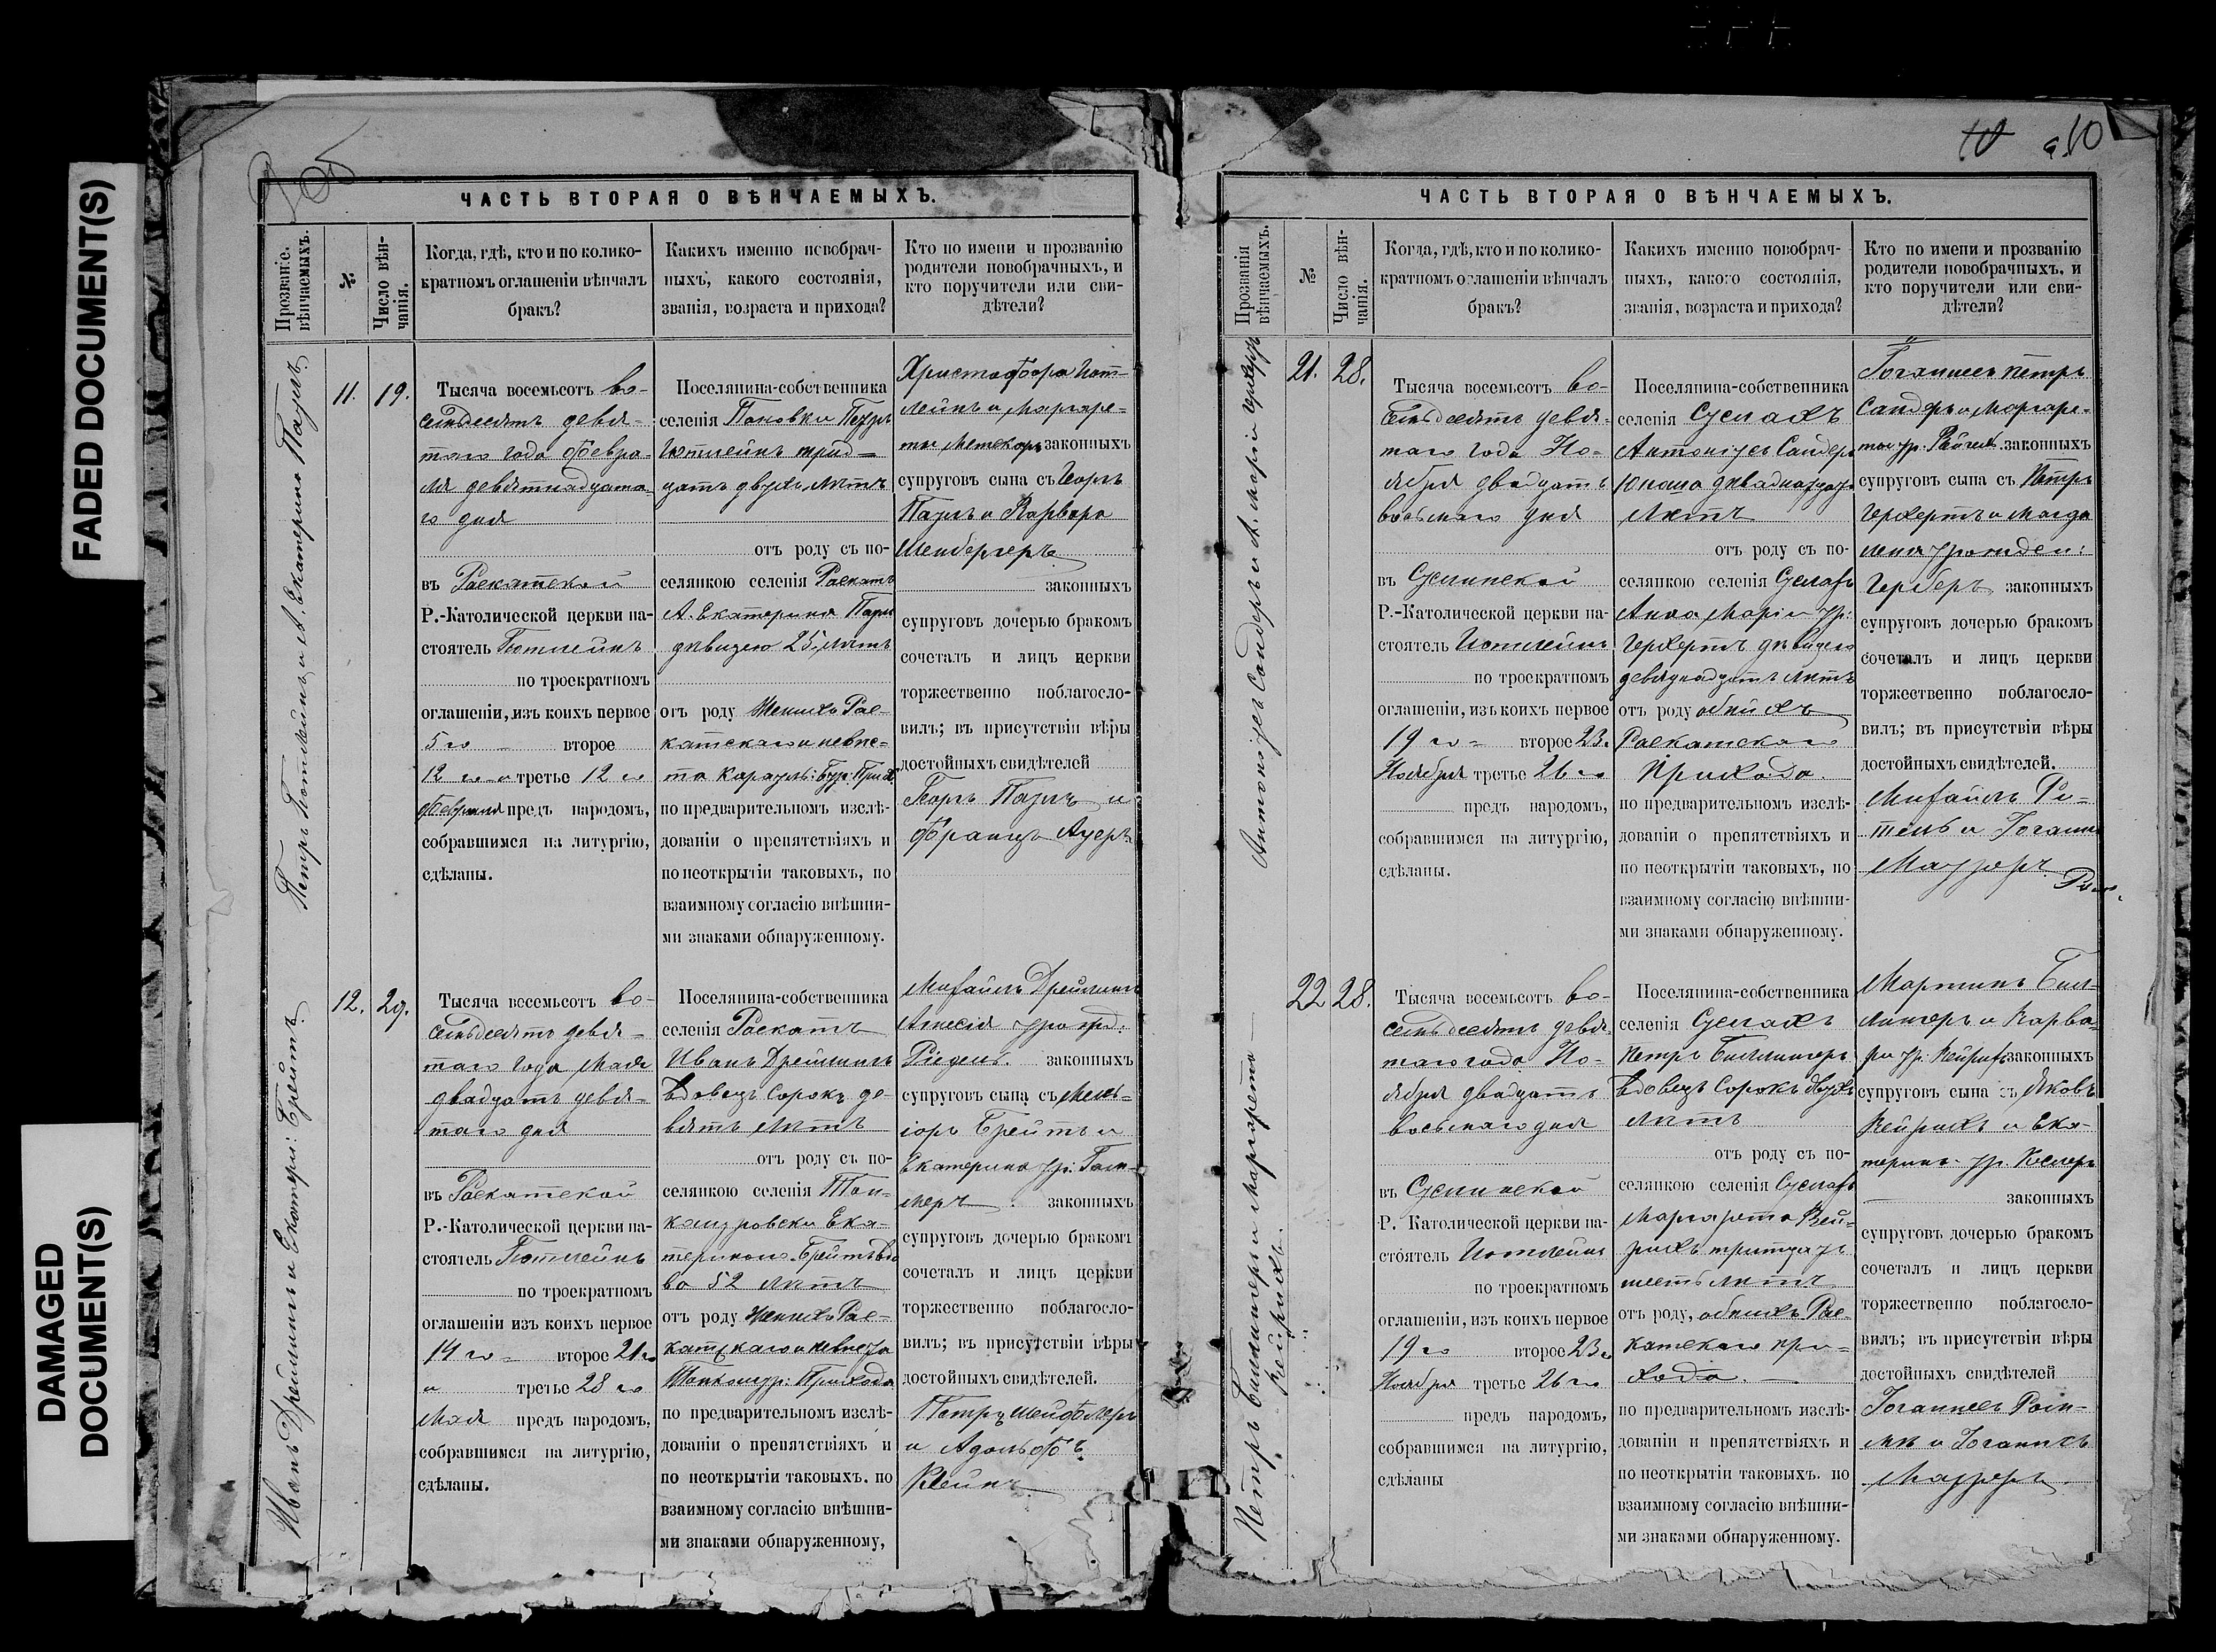 FADED DOCUMENT(S)
DAMAGED
DOCUMENT(S)
ЧАСТЬ ВТОРАЯ О ВѢНЧАЕМЫХЪ.
Прозваніе.
вѣнчаемыхъ.
№
Число вѣн-
чанія.
Когда, гдѣ, кто и по колико-
кратномъ оглашеніи вѣнчалъ
бракъ?
Какихъ именно новобрач-
ныхъ, какого состоянія,
званія, возраста и прихода?
Кто по имени и прозванію
родители новобрачныхъ, и
кто поручители или сви-
дѣтели?
Петръ Готлейнъ и А. Екатерина Паулъ
11.
19.
Тысяча восемьсотъ во-
семьдесятъ девя-
таго года Февра-
ля девятнадцата-
го дня
въ Раскатской
Р.-Католической церкви на-
стоятель Готлейнъ
по троекратномъ
оглашеніи, изъ коихъ первое
5 го второе
12 го и третье 12 го
февраля предъ народомъ,
собравшимся на литургію,
сдѣланы.
Поселянина-собственника
селенія Поповки Петръ
Готлейнъ трид-
цать двухъ лѣтъ
отъ роду съ по-
селянкою селенія Раскатъ
А. Екатерина Паулъ
дѣвицею 25, лѣтъ
отъ роду Женихъ Рас-
катскаго и невѣс-
та
по предварительномъ изслѣ-
дованіи о препятствіяхъ и
по неоткрытіи таковыхъ, по
взаимному согласію внѣшни-
ми знаками обнаруженному.
Христофора Гот-
лейнъ и Маргаре-
ты законныхъ
супруговъ сына съ Георгъ
Паулъ и Варвара
Шенбергеръ
законныхъ
супруговъ дочерью бракомъ
сочеталъ и лицъ церкви
торжественно поблагосло-
вилъ; въ присутствіи вѣры
достойныхъ свидѣтелей
Георгъ Паулъ и
Францъ Ауеръ
Иванъ Дрейлингъ и Екатери: Брейтъ
12.
29.
Тысяча восемьсотъ во-
семьдесятъ девя-
таго года Мая
двадцать девя-
таго дня
въ Раскатской
Р.-Католической церкви на-
стоятель Готлейнъ
по троекратномъ
оглашеніи изъ коихъ первое
14 го второе 21 го
и третье 28 го
Мая предъ народомъ,
собравшимся на литургію,
сдѣланы.
Поселянина-собственника
селенія Раскатъ
Иванъ Дрейлингъ
Вдовецъ сорокъ де-
вять лѣтъ
отъ роду съ по-
селянкою селенія Тон-
кошуровки Ека-
териною Брейтъ вдо
ва 52 лѣтъ
отъ роду Женихъ Рас-
катскаго и невѣста
Тонкошур: Прихода
по предварительномъ изслѣ-
дованіи о препятствіяхъ и
по неоткрытіи таковыхъ. по
взаимному согласію внѣшни-
ми знаками обнаруженному,
Михаилъ Дрейлингъ
Агнесія урожд:
Ридель. законныхъ
супруговъ сына съ Мель-
іоръ Брейтъ и
Екатерина ур:
законныхъ
супруговъ дочерью бракомъ
сочеталъ и лицъ церкви
торжественно поблагосло-
вилъ; въ присутствіи вѣры
достойныхъ свидѣтелей.
Петръ Шейферъ
и Адольфъ
Клейнъ
10
10
ЧАСТЬ ВТОРАЯ О ВѢНЧАЕМЫХЪ.
Прозванія
вѣнчаемыхъ.
№
Число вѣн-
чанія.
Когда, гдѣ, кто и по колико-
кратномъ оглашеніи вѣнчалъ
бракъ?
Какихъ именно новобрач-
ныхъ, какого состоянія,
званія, возраста и прихода?
Кто по имени и прозванію
родители новобрачныхъ. и
кто поручители или сви-
дѣтели?
Антоніусъ Сандеръ и А. Марія Герхертъ
21.
28.
Тысяча восемьсотъ во-
семьдесятъ девя-
таго года Но-
ября двадцать
восьмаго дня
въ Суслинской
Р.-Католической церкви на-
стоятель Готлейнъ
по троекратномъ
оглашеніи, изъ коихъ первое
19 го второе 23 го
Ноября третье 26 го
предъ народомъ,
собравшимся на литургію,
сдѣланы.
Поселянина-собственника
селенія Суслахъ
Антоніусъ Сандеръ
Юноша двадцать
лѣтъ
отъ роду съ по-
селянкою селенія Суслахъ
Анна Марія ур:
Герхертъ дѣвицею
девятнадцать лѣтъ
отъ роду обѣихъ
Раскатскаго
Прихода.
по предварительномъ изслѣ-
дованіи о препятствіяхъ и
по неоткрытіи таковыхъ, по
взаимному согласію внѣшни-
ми знаками обнаруженному.
Іоганнесъ Петръ
Сандеръ и Маргаре-
ты ур. законныхъ
супруговъ сына съ Петръ
Герхертъ и Магда
лена урожден:
Герберъ законныхъ
супруговъ дочерью бракомъ
сочеталъ и лицъ церкви
торжественно поблагосло-
вилъ; въ присутствіи вѣры
достойныхъ свидѣтелей.
Михаилъ
и Іоганн
Маурерь
Петръ Биллингеръ и Маргарета
Кейрихъ.
22
28.
Тысяча восемьсотъ во-
семьдесятъ девя-
таго года Но-
ября двадцать
восьмаго дня
въ Суслинской
Р.- Католической церкви на-
стоятель Готлейнъ
по троекратномъ
оглашеніи, изъ коихъ первое
19 го второе 23 го
Ноября третье 26 го
предъ народомъ,
собравшимся на литургію,
сдѣланы
Поселянина-собственника
селенія Суслахъ
Петръ Биллингеръ
Вдовецъ сорокъ двухъ
лѣтъ
отъ роду съ по-
селянкою селенія Суслахъ
Маргарета Кей-
рихъ тритцать
шесть лѣтъ
отъ роду, обѣихъ Рас-
катскаго при-
хода.
по предварительномъ изслѣ-
дованіи и препятствіяхъ и
по неоткрытіи таковыхъ. по
взаимному согласію внѣшни-
ми знаками обнаруженному.
Мартинъ Бил-
лингеръ и Варва-
ра ур: законныхъ
супруговъ сына съ Яковъ
Кейрихъ и Ека-
терина ур.
законныхъ
супруговъ дочерью бракомъ
сочеталъ и лицъ церкви
торжественно поблагосло-
вилъ; въ присутствіи вѣры
достойныхъ свидѣтелей
Іоганнесъ
и Іоганнесъ
Мауреръ